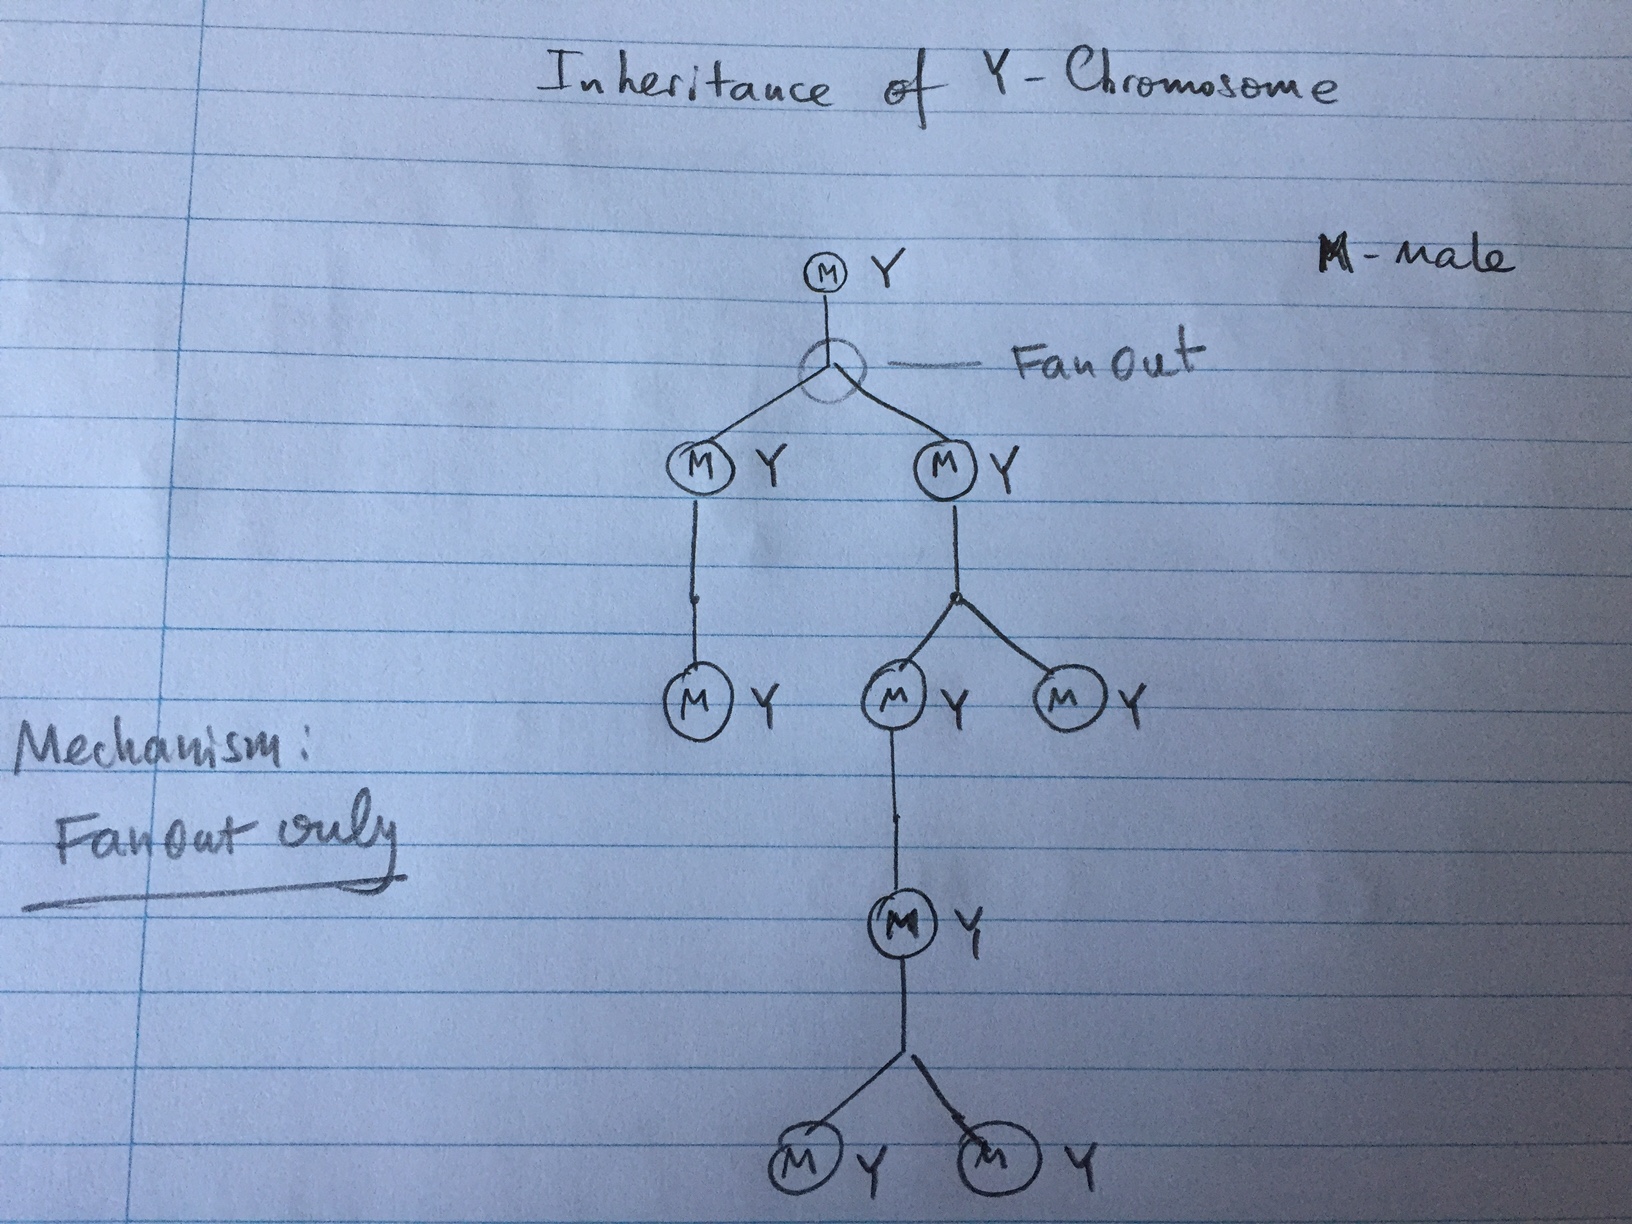 Inheritance of Y-Chromosome
M Y
M-male
Fan Out
M Y M Y
M Y M Y M Y
Mechanism:
Fan Out only
M Y
M Y M Y